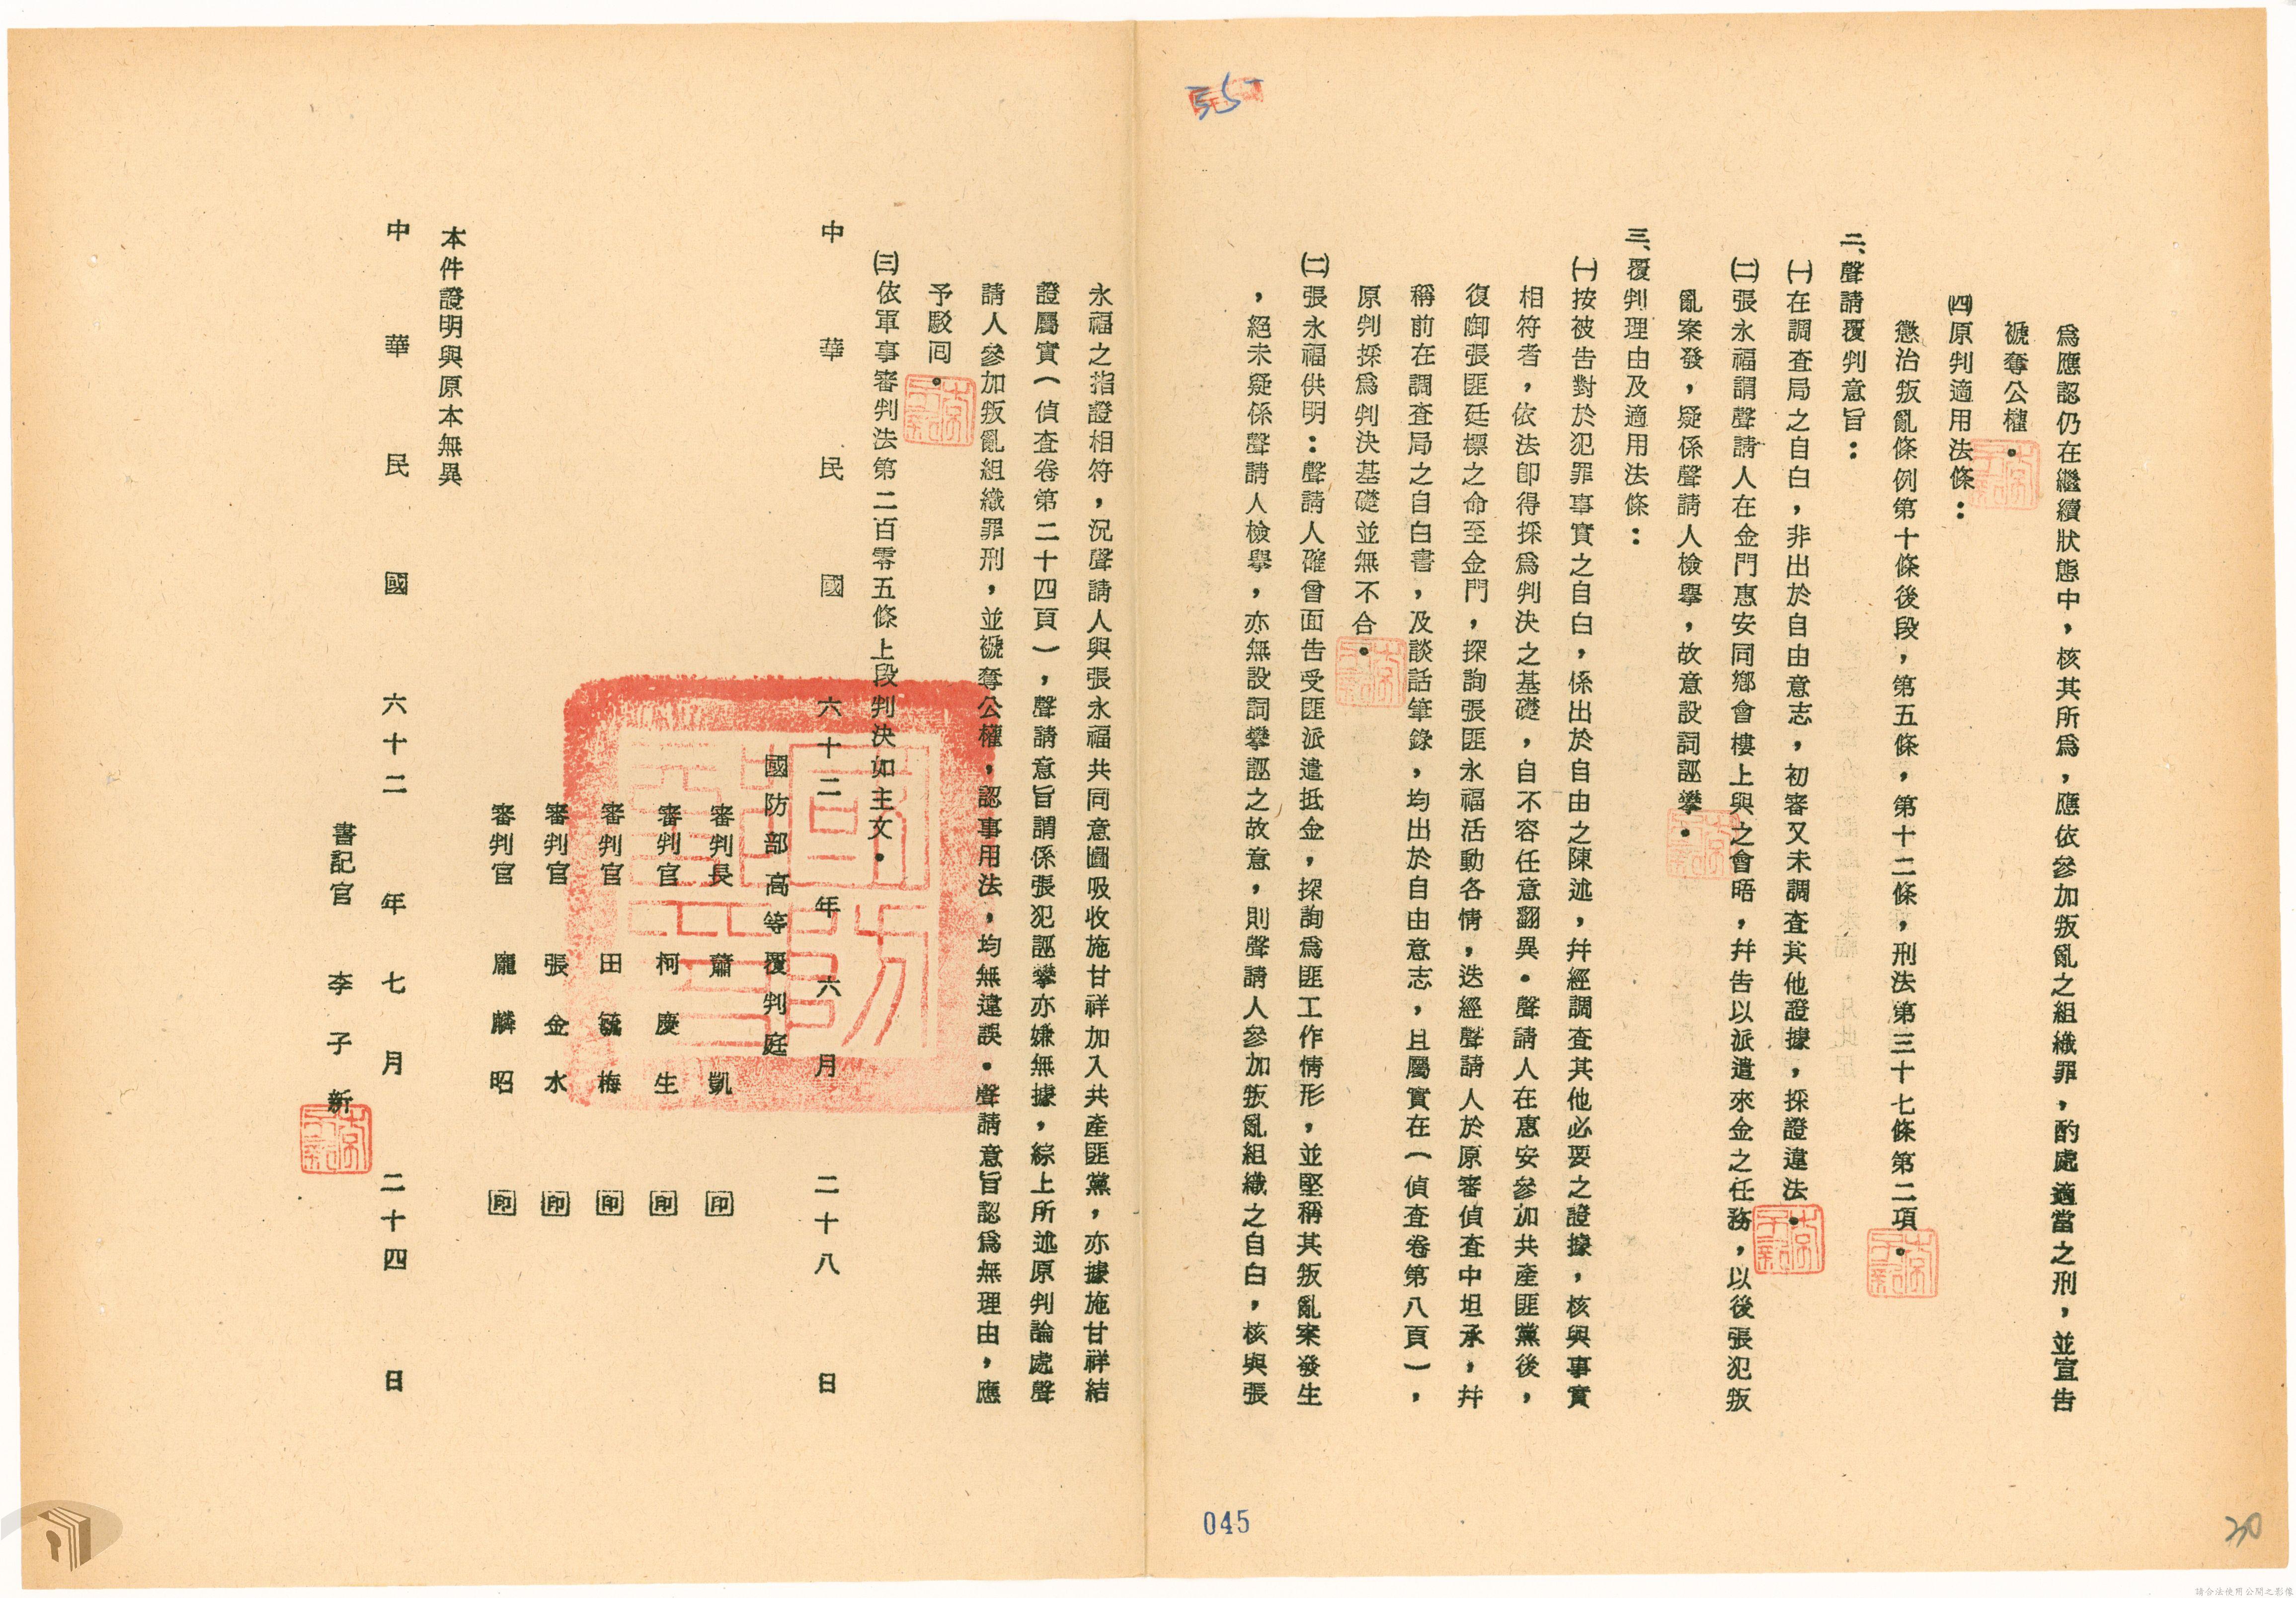 為應認仍在繼續狀態中，核其所為，應依參加叛亂之組織罪，酌處適當之刑，並宣告
褫奪公權。
㈣原判適用法條：
懲治叛亂條例第十條後段，第五條，第十二條，刑法第三十七條第二項。
二、聲請覆判意旨：
㈠在調查局之自白，非出於自由意志，初審又未調查其他證據，採證違法。
㈡張永福謂聲請人在金門惠安同鄉會樓上與之會晤，幷告以派遣來金之任務，以後張犯叛
亂案發，疑係聲請人檢舉，故意設詞誣攀。
三、覆判理由及適用法條：
㈠按被告對於犯罪事實之自白，係出於自由之陳述，幷經調查其他必要之證據，核與事實
相符者，依法卽得採為判決之基礎，自不容任意翻異。聲請人在惠安參加共產匪黨後，
復啣張匪廷標之命至金門，探詢張匪永福活動各情，迭經聲請人於原審偵查中坦承，幷
稱前在調查局之自白書，及談話筆錄，均出於自由意志，且屬實在（偵查卷第八頁），
原判採為判決基礎並無不合。
㈡張永福供明：聲請人確曾面告受匪派遣抵金，探詢為匪工作情形，並堅稱其叛亂案發生
，絕未疑係聲請人檢舉，亦無設詞攀誣之故意，則聲請人參加叛亂組織之自白，核與張
永福之指證相符，況聲請人與張永福共同意圖吸收施甘祥加入共產匪黨，亦據施甘祥結
證屬實（偵查卷第二十四頁），聲請意旨謂係張犯誣攀亦嫌無據，綜上所述原判論處聲
請人參加叛亂組織罪刑，並褫奪公權，認事用法，均無違誤。聲請意旨認為無理由，應
予駁回。
㈢依軍事審判法第二百零五條上段判決如主文。
中華民國六十二年六月二十八日
國防部高等覆判庭
審判長 蕭凱 印
審判官 柯慶生 印
審判官 田毓梅 印
審判官 張金水 印
審判官 龐麟昭 印
本件證明與原本無異
中華民國六十二年七月二十四日
書記官 李子新
55
045
30
請合法使用公開之影像